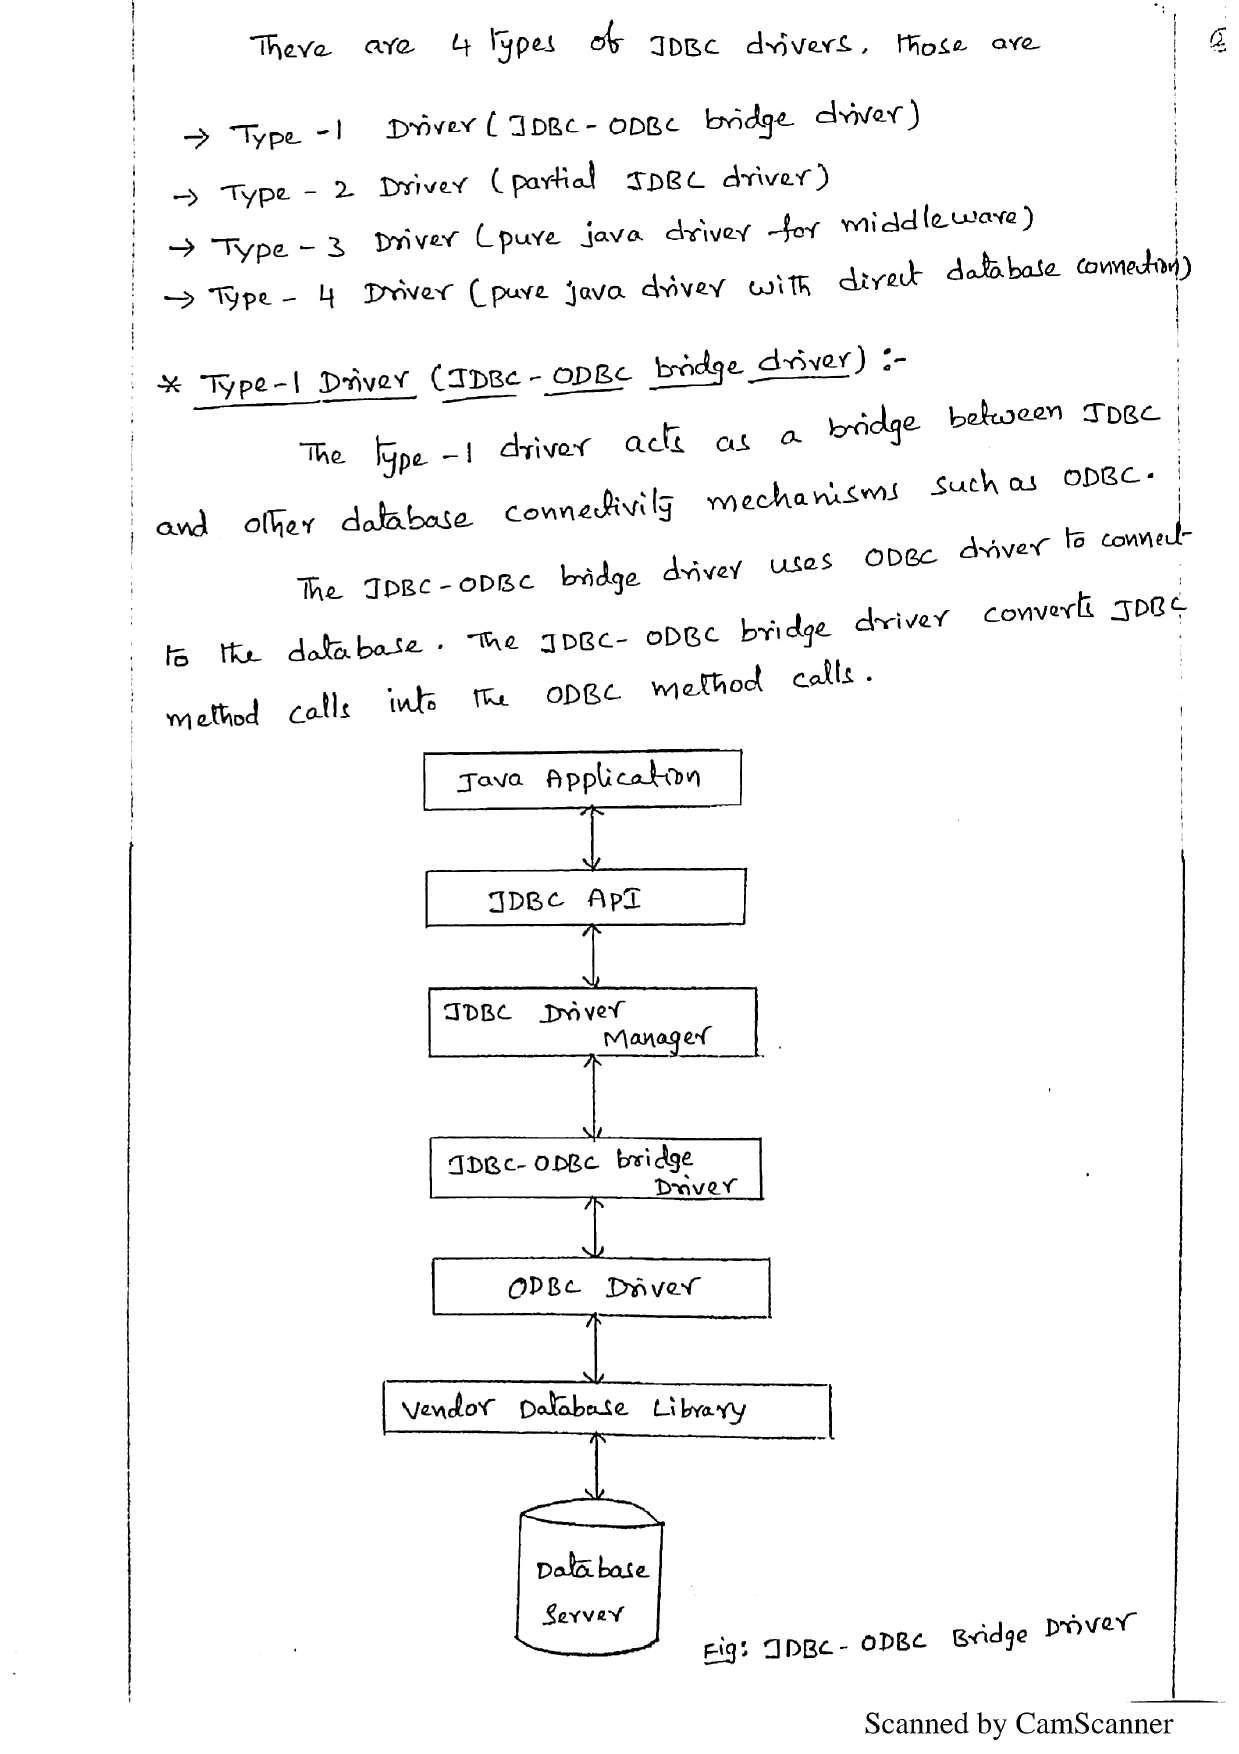 There are 4 types of JDBC drivers, those are
→ Type-1 Driver (JDBC-ODBC bridge driver)
→ Type-2 Driver (partial JDBC driver)
→ Type-3 Driver (pure java driver for middleware)
→ Type-4 Driver (pure java driver with direct database connection)
* Type-1 Driver (JDBC-ODBC bridge driver) :-
The type-1 driver acts as a bridge between JDBC
and other database connectivity mechanisms such as ODBC.
The JDBC-ODBC bridge driver uses ODBC driver to connect
to the database. The JDBC-ODBC bridge driver converts JDBC
method calls into the ODBC method calls.
Java Application
JDBC API
JDBC Driver
Manager
JDBC-ODBC bridge
Driver
ODBC Driver
Vendor Database Library
Database
Server
Fig: JDBC-ODBC Bridge Driver
Scanned by CamScanner